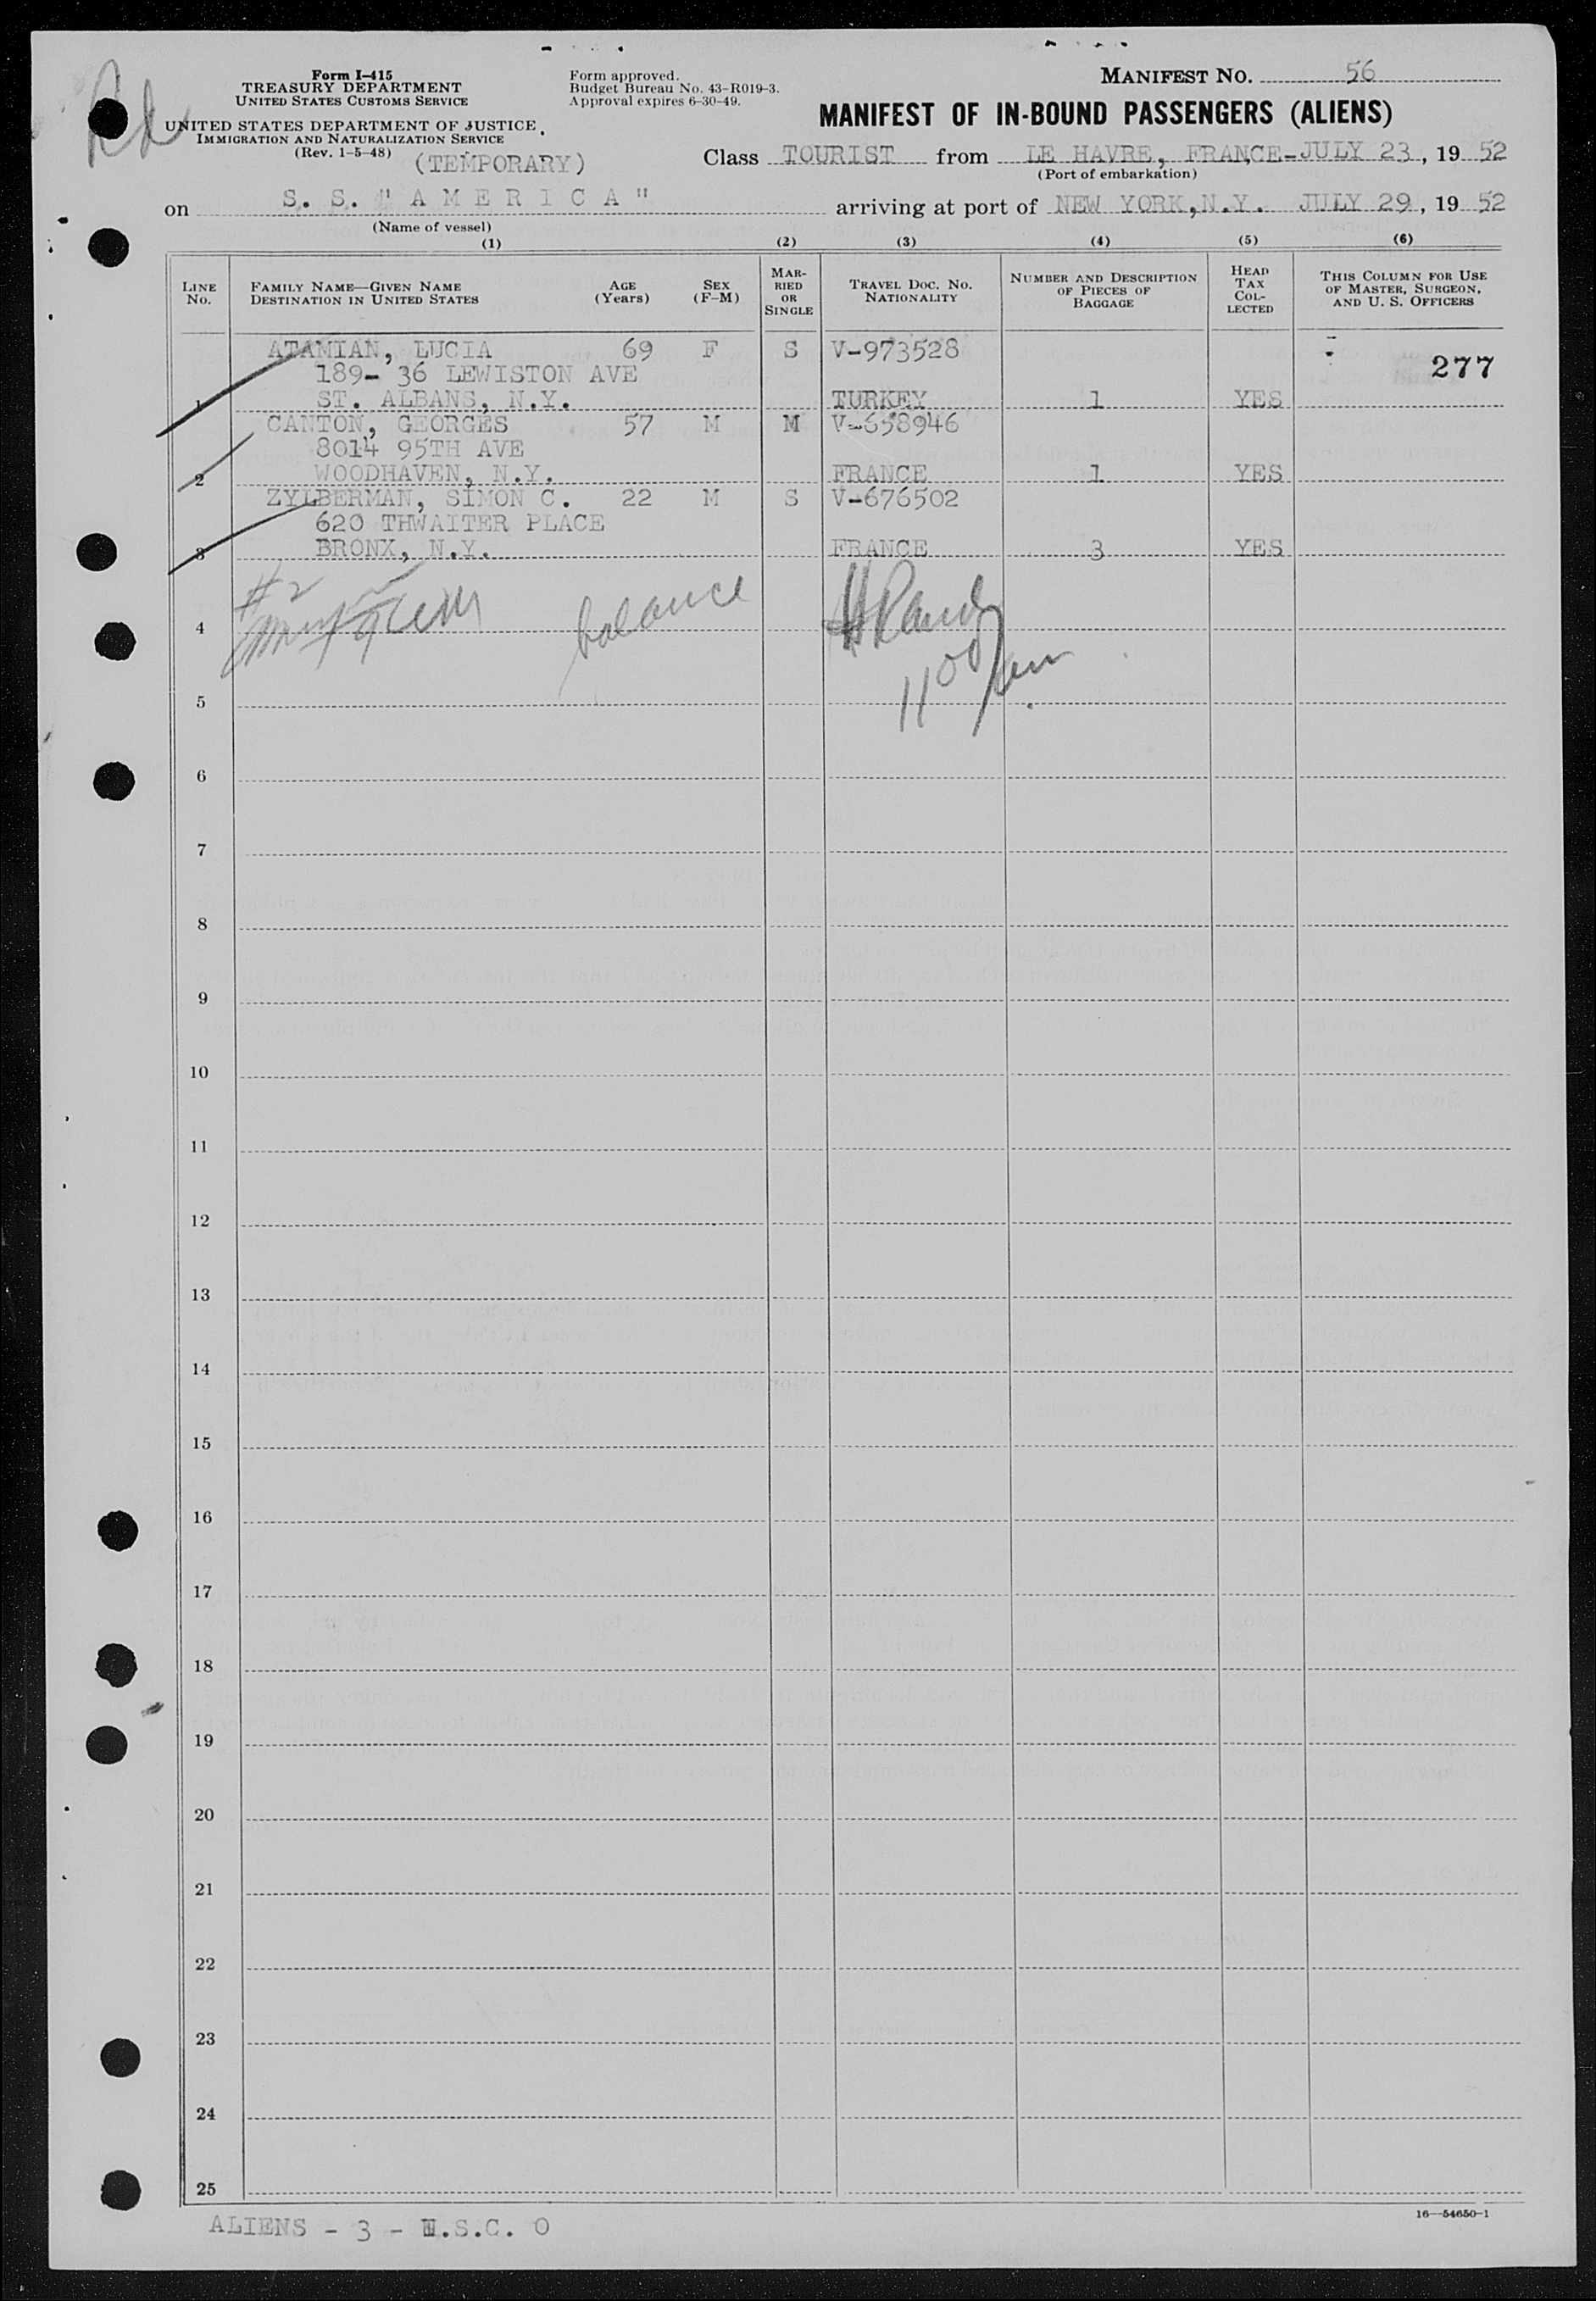 Form I-415
TREASURY DEPARTMENT
UNITED STATES CUSTOMS SERVICE
UNITED STATES DEPARTMENT OF JUSTICE
IMMIGRATION AND NATURALIZATION SERVICE
(Rev. 1-5-48) (TEMPORARY)
Form approved.
Budget Bureau No. 43-R019-3.
Approval expires 6-30-49.
MANIFEST NO. 56
MANIFEST OF IN-BOUND PASSENGERS (ALIENS)
Class TOURIST from LE HAVRE, FRANCE-JULY 23, 19 52
(Port of embarkation)
on S. S. "AMERICA" arriving at port of NEW YORK, N.Y. JULY 29, 19 52
(Name of vessel)
(1) (2) (3) (4) (5) (6)
LINE NO. FAMILY NAME—GIVEN NAME DESTINATION IN UNITED STATES AGE (Years) SEX (F-M) MARRIED OR SINGLE TRAVEL DOC. NO. NATIONALITY NUMBER AND DESCRIPTION OF PIECES OF BAGGAGE HEAD TAX COLLECTED THIS COLUMN FOR USE OF MASTER, SURGEON, AND U. S. OFFICERS
ATAMIAN, LUCIA 69 F S V-973528 277
189- 36 LEWISTON AVE
1 ST. ALBANS, N.Y. TURKEY 1 YES
CANTON, GEORGES 57 M M V-658946
8014 95TH AVE
2 WOODHAVEN, N.Y. FRANCE 1 YES
ZYLBERMAN, SIMON C. 22 M S V-676502
620 THWAITER PLACE
3 BRONX, N.Y. FRANCE 3 YES
#2
balance
4
11 00 am
5
6
7
8
9
10
11
12
13
14
15
16
17
18
19
20
21
22
23
24
25
ALIENS - 3 - U.S.C. 0
16—54650-1